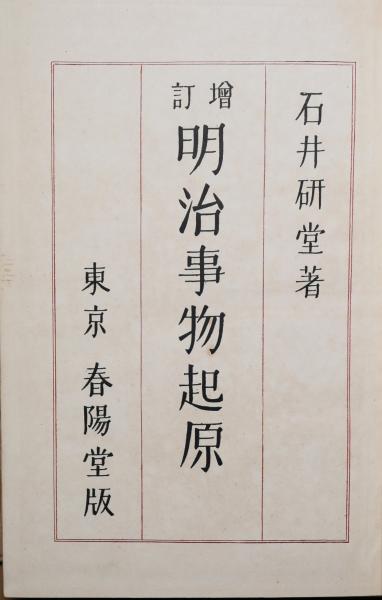 石井研堂著
增訂
明治事物起原
東京 春陽堂版